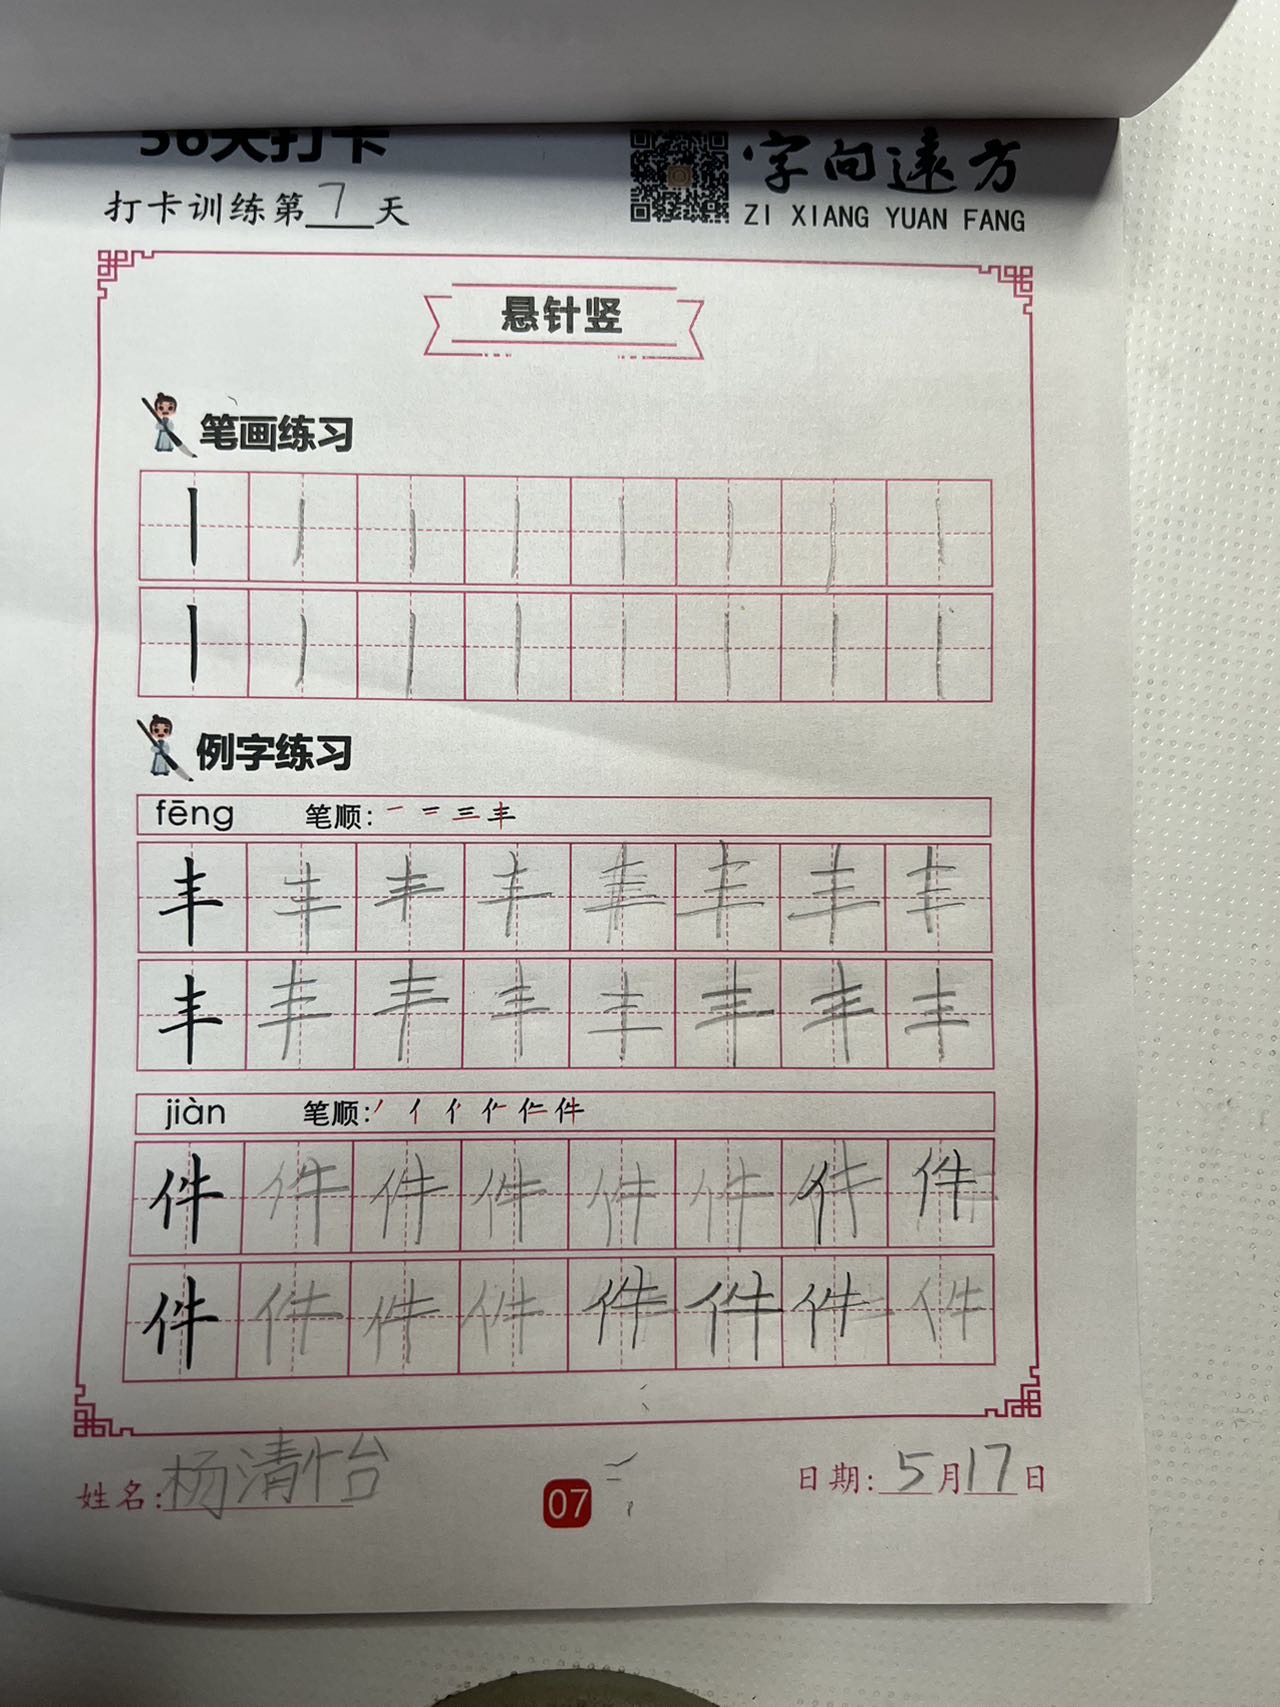 56天打卡
打卡训练第7天
字向远方
ZI XIANG YUAN FANG
悬针竖
笔画练习
丨 丨 丨 丨 丨 丨 丨 丨
丨 丨 丨 丨 丨 丨 丨 丨
例字练习
fēng 笔顺: 一 二 三 丰
丰 丰 丰 丰 丰 丰 丰 丰
丰 丰 丰 丰 丰 丰 丰 丰
jiàn 笔顺: 丿 亻 仁 件
件 件 件 件 件 件 件 件
件 件 件 件 件 件 件 件
姓名:杨清怡
07
日期:5月17日